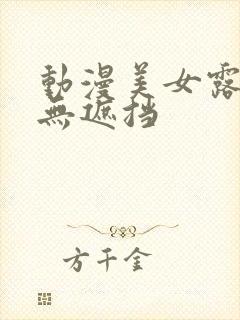 動漫美女露
無遮挡
方千金